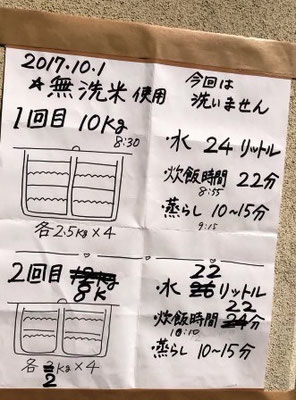 2017.10.1
☆無洗米使用
今回は
洗いません
1回目 10Kg
8:30
各2.5Kg×4
・水 24リットル
・炊飯時間 22分
8:55
・蒸らし 10~15分
9:15
2回目
8k
各 2 ×4
・水 22リットル
・炊飯時間 22分
10:10
・蒸らし 10~15分